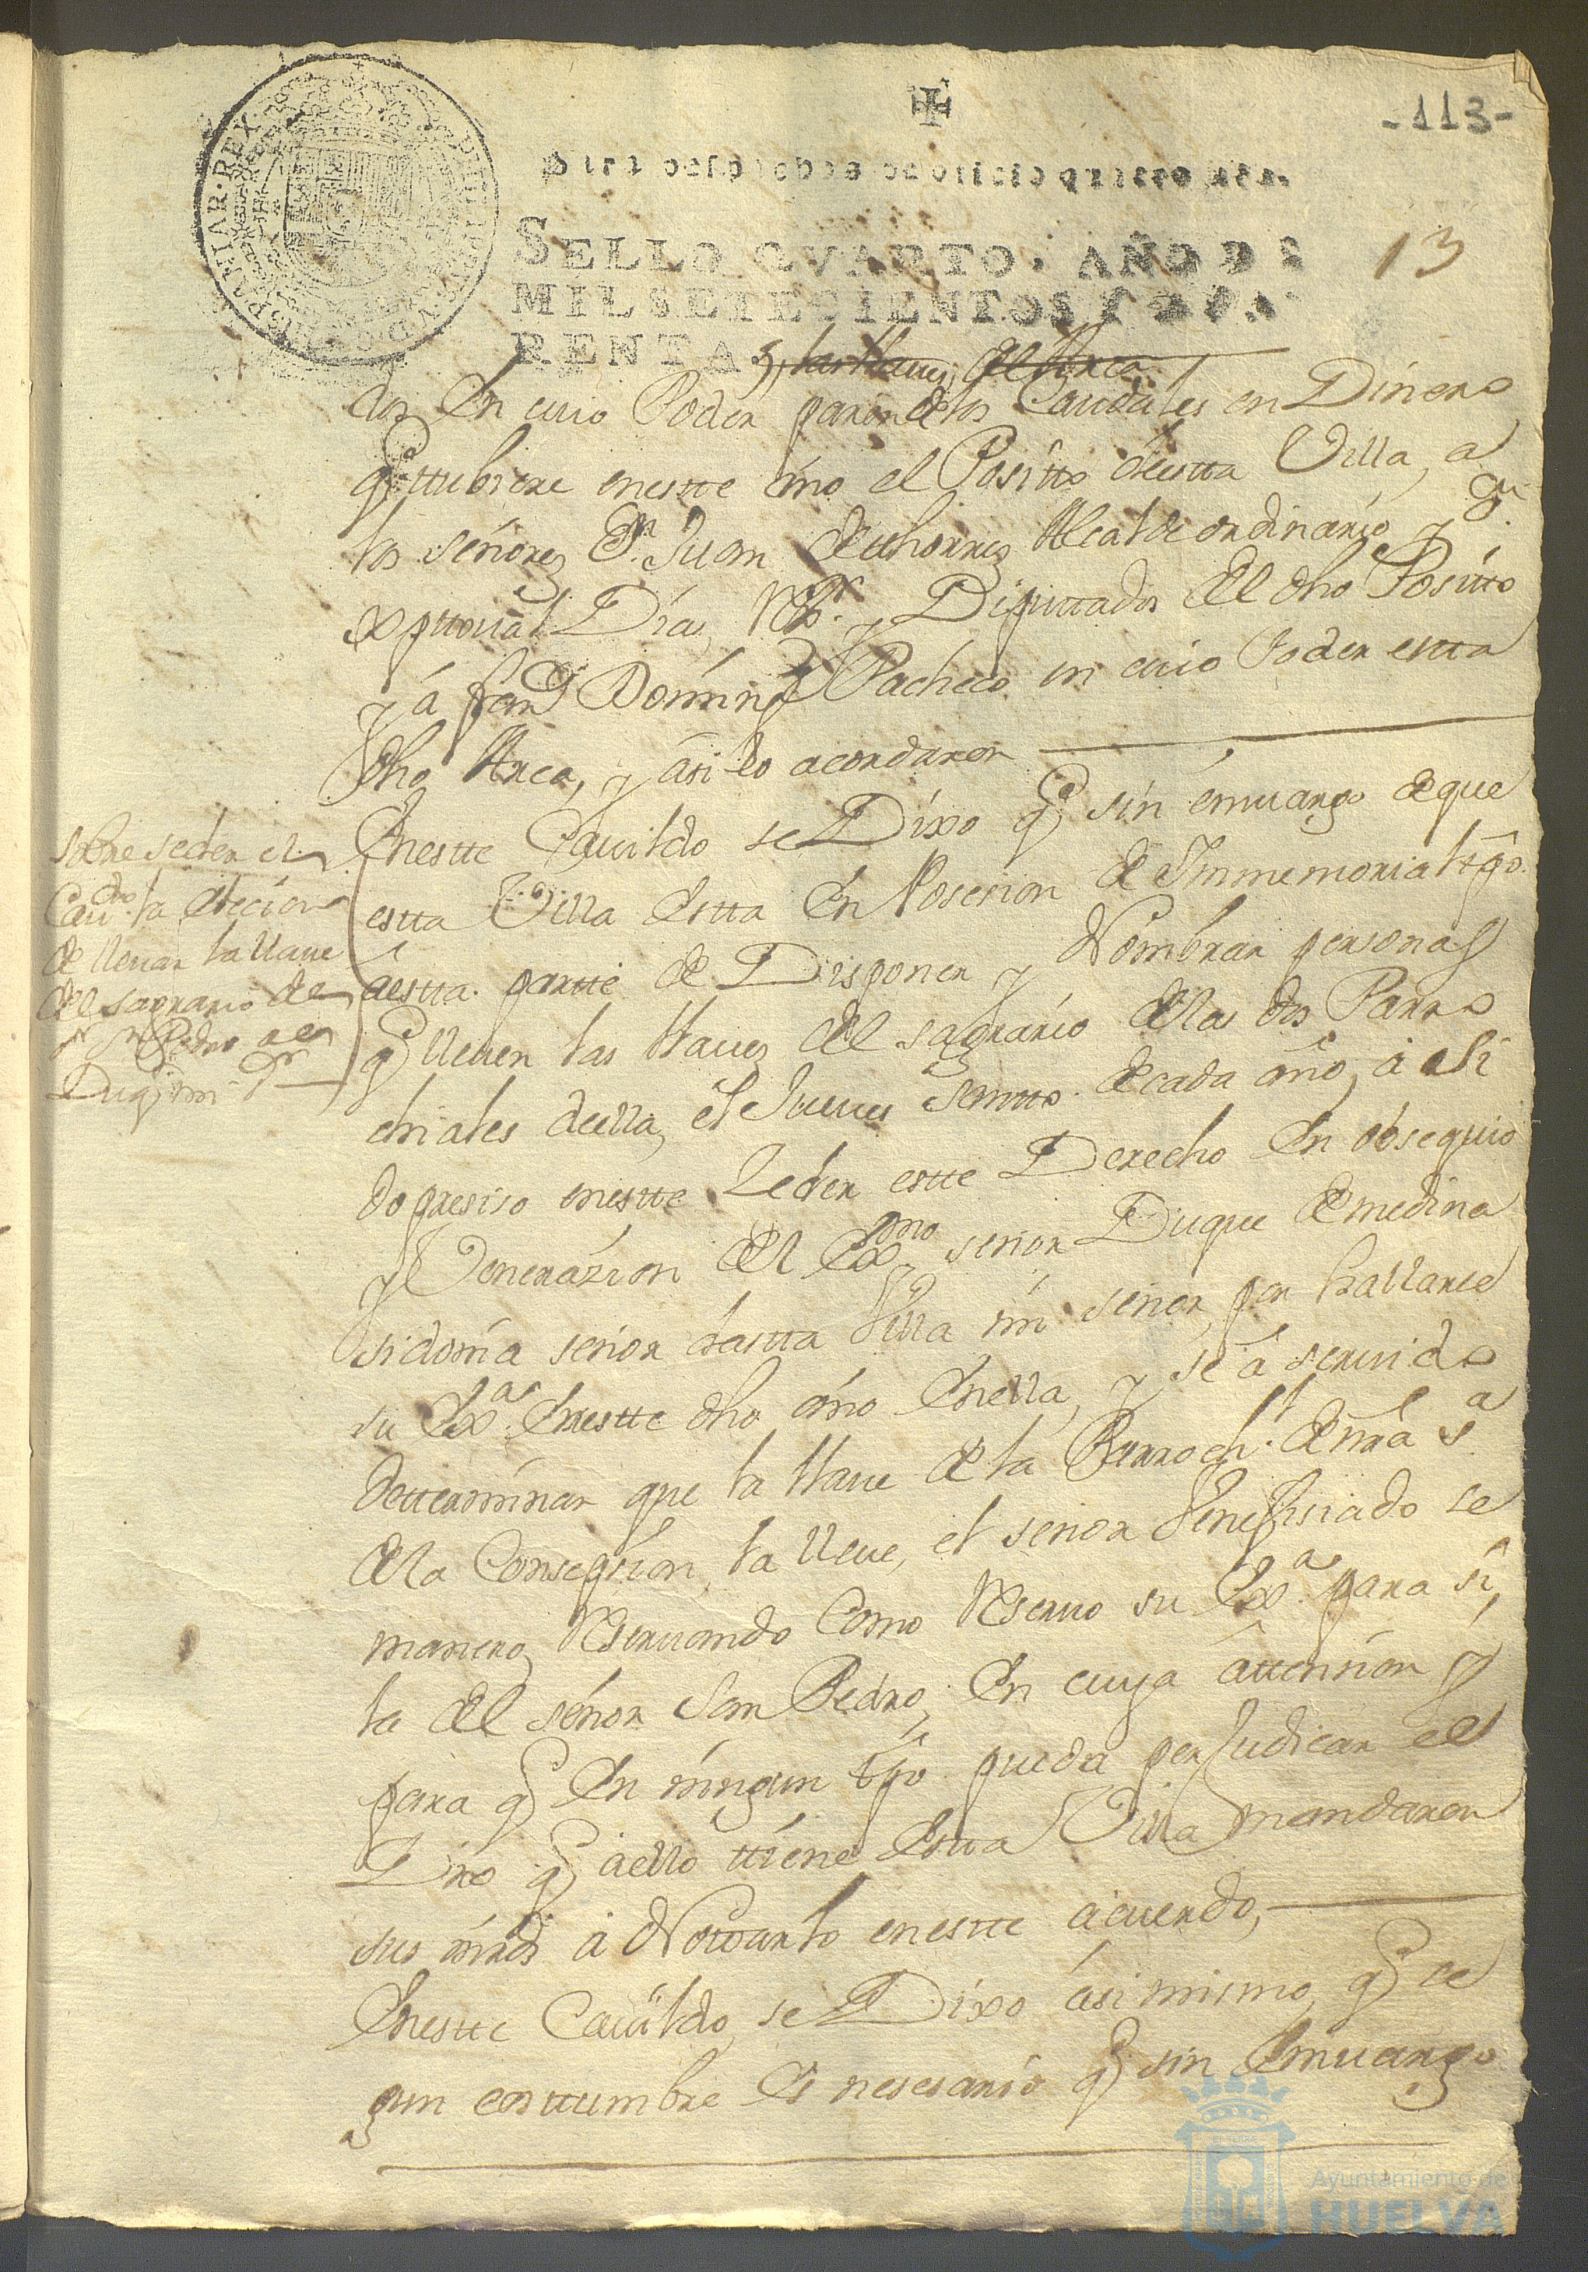 -113-
Para despachos de oficio quatro mrs.
SELLO QVARTO, AÑO DE
MIL SETECIENTOS Y QVA
RENTA.
13
HISPANIAR·REX
y las llaues del Arca
dos En cuio Poder paran los Caudales en Dinero
q ttubiere enestte año el Positto destta Villa, a
los señores Dn. Juan dethorres Alcalde ordinario y
xpttoual Días, Rr. y Diputtados del dho Positto
y á fran.co Doming.z Pacheco en cuio Poder estta
dho Arca, y asi lo acordaron
sobre seder el
Cau.do la elecion
de lleuar la llaue
del sagrario de
sr. Sn. Pedro a el
Duq mi Sr.
Enestte Cauildo se Dixo q sin emuargo deque
estta Villa Estta En Posesion de Immemorial tpo.
aestta partte de Disponer y Nombrar personas
q lleuen las llaues del sagrario delas dos Parro
chiales deella, el Jueues santto decada año, á si
do presiso enestte Zeder estte Derecho En obsequio
y Venerazion del Exmo señor Duque de medina
sidonia señor destta Villa mi señor, por hallarse
su Exa. Enestte dho año Enella, y se á seruido
determinar que la llaue de la Parroch.l de nra sa
dela Consepsion, la lleue, el señor Venefisiado se
manero, Reseruando Como Reseruo su Exa. para si,
la del señor San Pedro, En cuya attension y
para q En ningun tpo pueda perJudicar el
Dro q aello ttiene Estta Villa mandaron
sus mrds á Nottarlo enestte acuerdo,
Enestte Cauildo, se Dixo asi mismo, q se
gun costtumbre Es nesesario q sin Emuargo
Ayuntamiento de
HUELVA